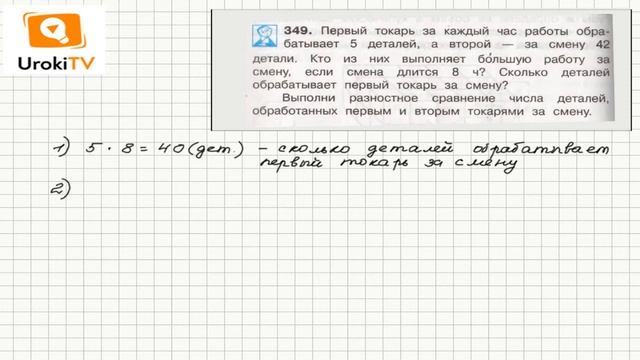 UrokiTV
349. Первый токарь за каждый час работы обра-
батывает 5 деталей, а второй — за смену 42
детали. Кто из них выполняет бо́льшую работу за
смену, если смена длится 8 ч? Сколько деталей
обрабатывает первый токарь за смену?
Выполни разностное сравнение числа деталей,
обработанных первым и вторым токарями за смену.
1) 5 · 8 = 40 (дет.) – сколько деталей обрабатывает
первый токарь за смену
2)